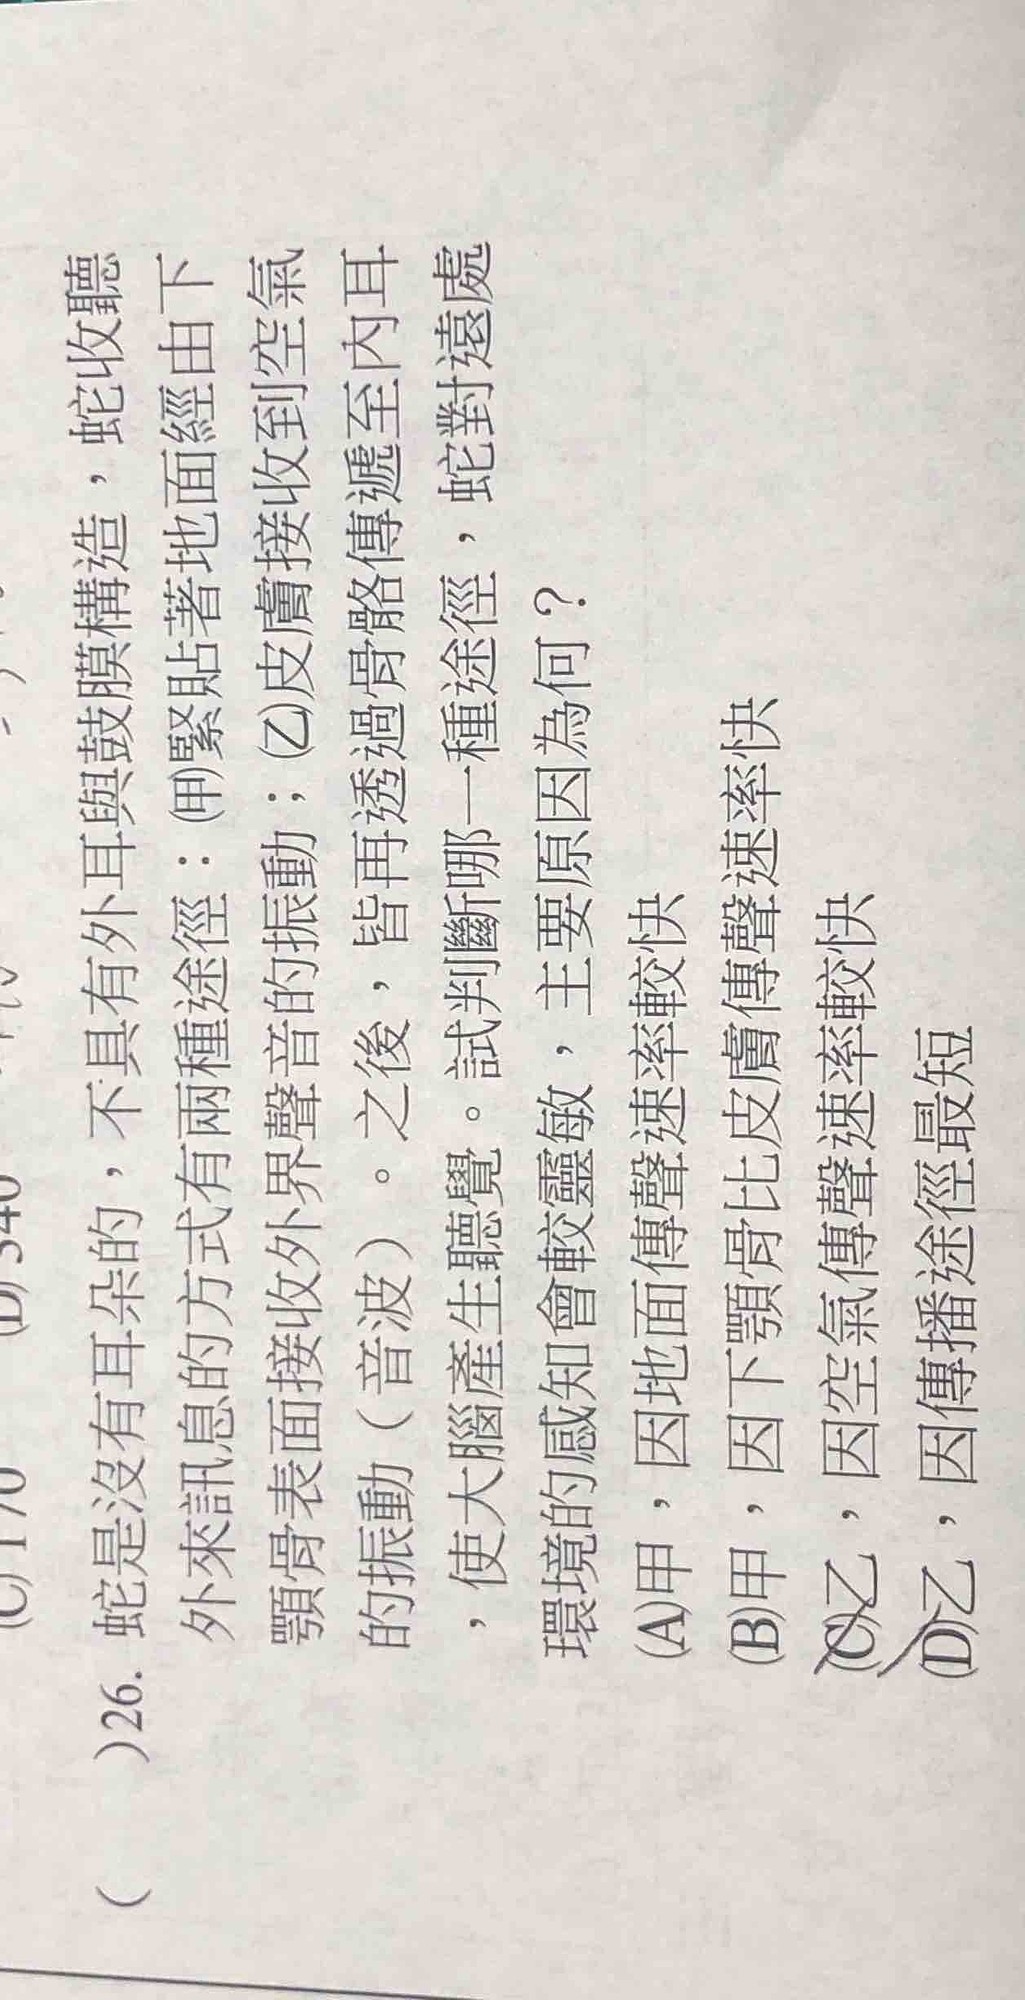 (C) 170 (D) 340
( )26. 蛇是沒有耳朵的，不具有外耳與鼓膜構造，蛇收聽
外來訊息的方式有兩種途徑：(甲)緊貼著地面經由下
顎骨表面接收外界聲音的振動；(乙)皮膚接收到空氣
的振動（音波）。之後，皆再透過骨骼傳遞至內耳
，使大腦產生聽覺。試判斷哪一種途徑，蛇對遠處
環境的感知會較靈敏，主要原因為何？
(A)甲，因地面傳聲速率較快
(B)甲，因下顎骨比皮膚傳聲速率快
(C)乙，因空氣傳聲速率較快
(D)乙，因傳播途徑最短